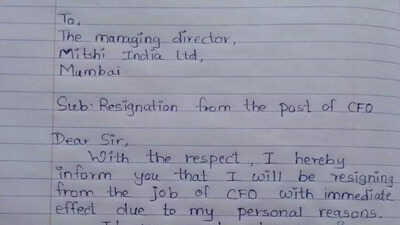 To,
The managing director,
Mitshi India Ltd,
Mumbai
Sub: Resignation from the post of CFO
Dear Sir,
With the respect, I hereby
inform you that I will be resigning
from the job of CFO with immediate
effect due to my personal reasons.